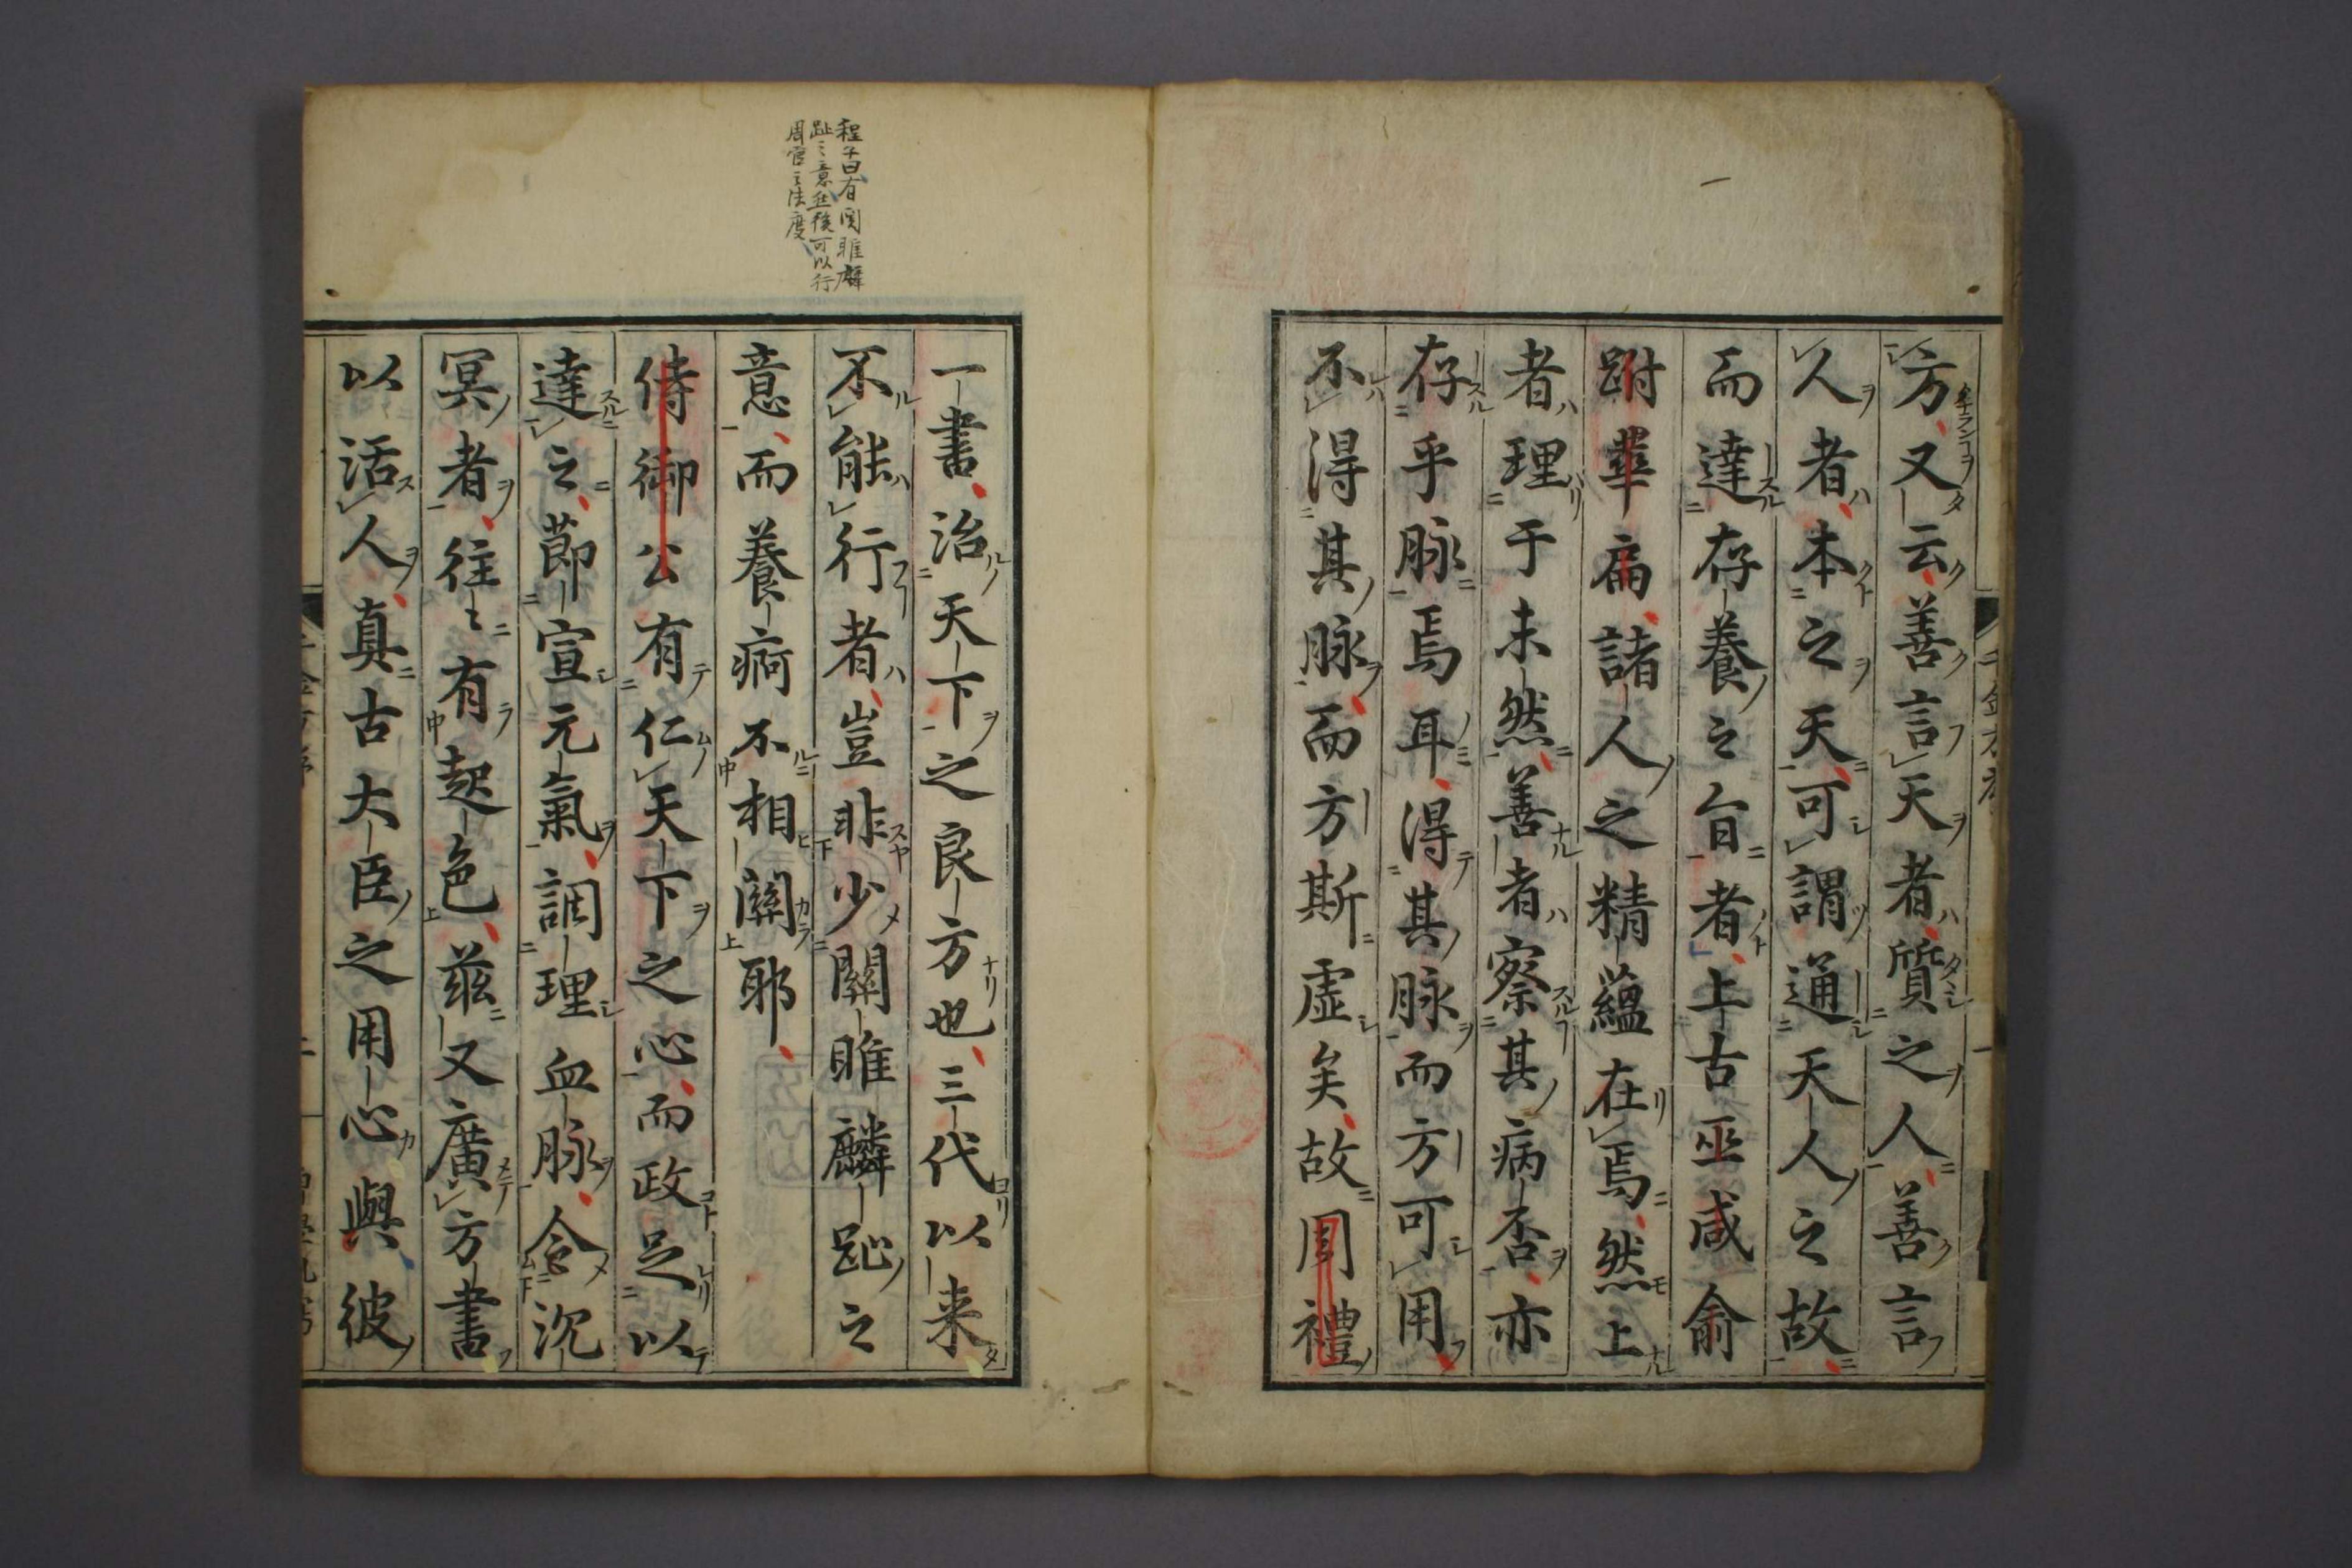 方又云善言天者質之人善言
人者本之天可謂通天人之故
而達存養之旨者上古巫咸俞
跗華扁諸人之精蘊在焉然上
者理于未然善者察其病否亦
存乎脉焉耳得其脉而方可用
不得其脉而方斯虛矣故周禮
程子曰有関雎麟
趾之意然後可以行
周官之法度
一書治天下之良方也三代以来
不能行者豈非少關雎麟趾之
意而養痾不相關耶
侍御公有仁天下之心而政足以
達之節宣元氣調理血脉令沉
冥者往〻有起色茲又廣方書
以活人真古大臣之用心與彼